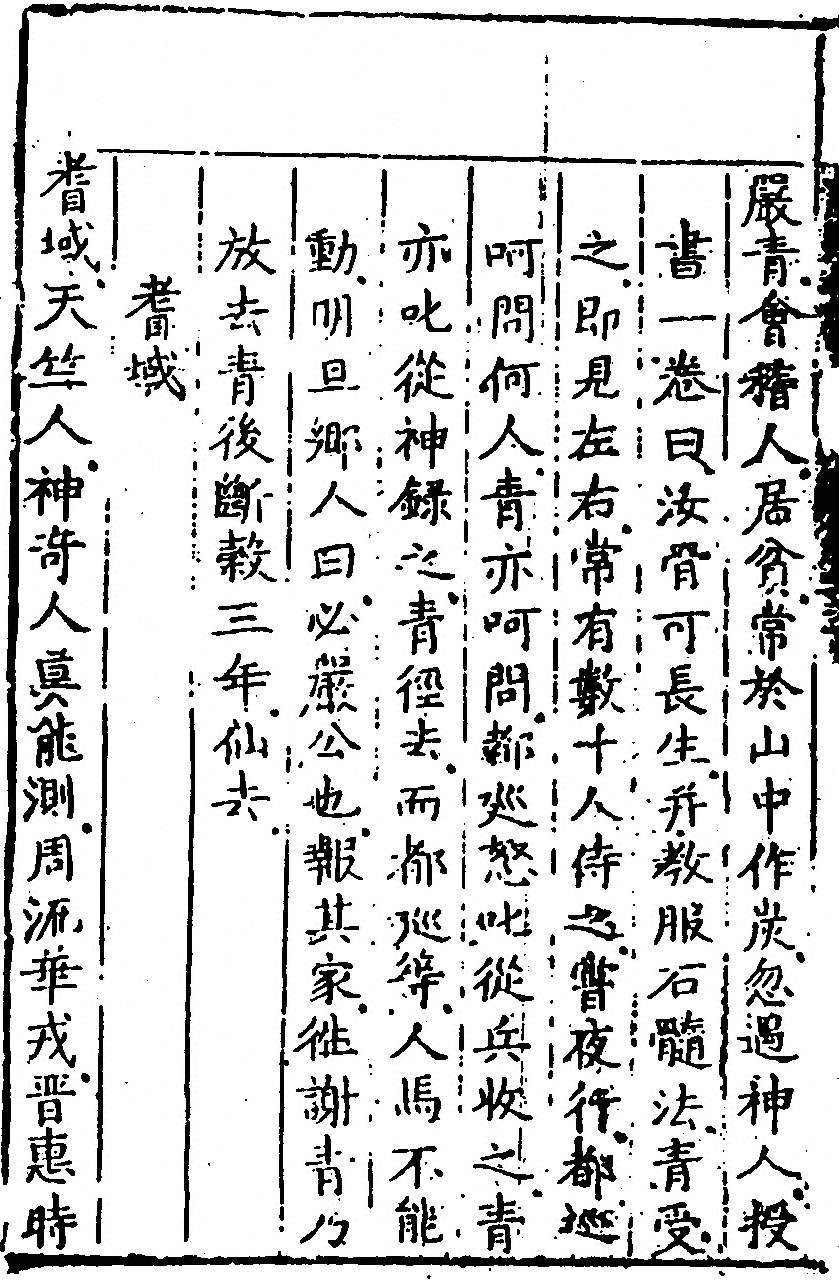 嚴青會稽人居貧常於山中作炭忽遇神人授
書一卷曰汝骨可長生并教服石髓法青受
之即見左右常有數十人侍之嘗夜行都巡
呵問何人青亦呵問都巡怒叱從兵收之青
亦叱從神録之青徑去而都巡等人馬不能
動明旦鄉人曰必嚴公也報其家徃謝青乃
放去青後斷榖三年仙去
耆域
耆域天竺人神奇人莫能測周流華戎晋惠時